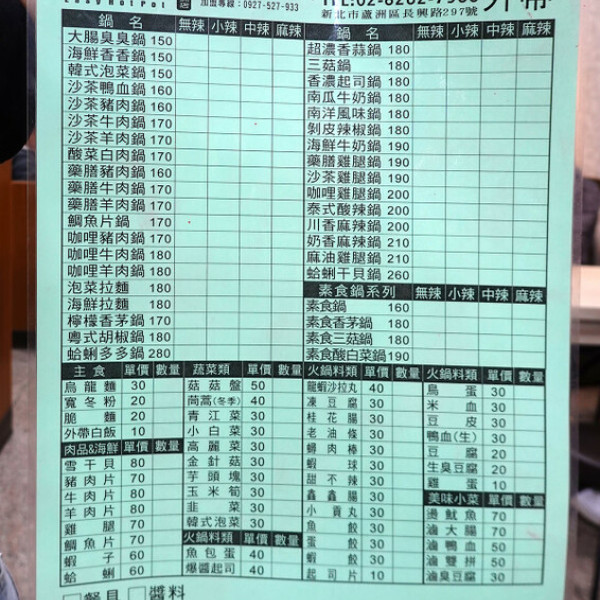 EASY HOT POT
加盟專線：0927-527-933
新北市蘆洲區長興路297號
鍋 名 無辣 小辣 中辣 麻辣
大腸臭臭鍋 150
海鮮香香鍋 150
韓式泡菜鍋 150
沙茶鴨血鍋 160
沙茶豬肉鍋 160
沙茶牛肉鍋 170
沙茶羊肉鍋 170
酸菜白肉鍋 170
藥膳豬肉鍋 160
藥膳牛肉鍋 170
藥膳羊肉鍋 170
鯛魚片鍋 170
咖哩豬肉鍋 170
咖哩牛肉鍋 180
咖哩羊肉鍋 180
泡菜拉麵 180
海鮮拉麵 180
檸檬香茅鍋 170
粵式胡椒鍋 180
蛤蜊多多鍋 280
鍋 名 無辣 小辣 中辣 麻辣
超濃香蒜鍋 180
三菇鍋 180
香濃起司鍋 180
南瓜牛奶鍋 180
南洋風味鍋 180
剝皮辣椒鍋 180
海鮮牛奶鍋 190
藥膳雞腿鍋 190
沙茶雞腿鍋 190
咖哩雞腿鍋 200
泰式酸辣鍋 200
川香麻辣鍋 200
奶香麻辣鍋 210
麻油雞腿鍋 210
蛤蜊干貝鍋 260
素食鍋系列 無辣 小辣 中辣 麻辣
素食鍋 160
素食香茅鍋 180
素食三菇鍋 180
素食酸白菜鍋 190
主 食 單價 數量
烏龍麵 30
寬冬粉 20
脆麵 20
外帶白飯 10
肉品&海鮮 單價 數量
雪干貝 80
豬肉片 70
牛肉片 80
羊肉片 80
雞腿 70
鯛魚片 70
蝦子 60
蛤蜊 60
蔬菜類 單價 數量
菇菇盤 50
茼蒿(冬季) 40
青江菜 30
小白菜 30
高麗菜 30
金針菇 30
芋頭塊 30
玉米筍 30
韭菜 30
韓式泡菜 30
火鍋料類 單價 數量
魚包蛋 40
爆醬起司 40
火鍋料類 單價 數量
龍蝦沙拉丸 40
凍豆腐 30
桂花腸 30
老油條 30
蟳肉棒 30
蝦球 30
甜不辣 30
鑫鑫腸 30
小貢丸 30
魚餃 30
蛋餃 30
蝦餃 30
起司片 10
火鍋料類 單價 數量
鳥蛋 30
米血 30
豆皮 30
鴨血(生) 30
豆腐 20
生臭豆腐 20
雞蛋 10
美味小菜 單價 數量
燙魷魚 70
滷大腸 70
滷鴨血 50
滷雙拼 50
滷臭豆腐 30
□餐具 □醬料